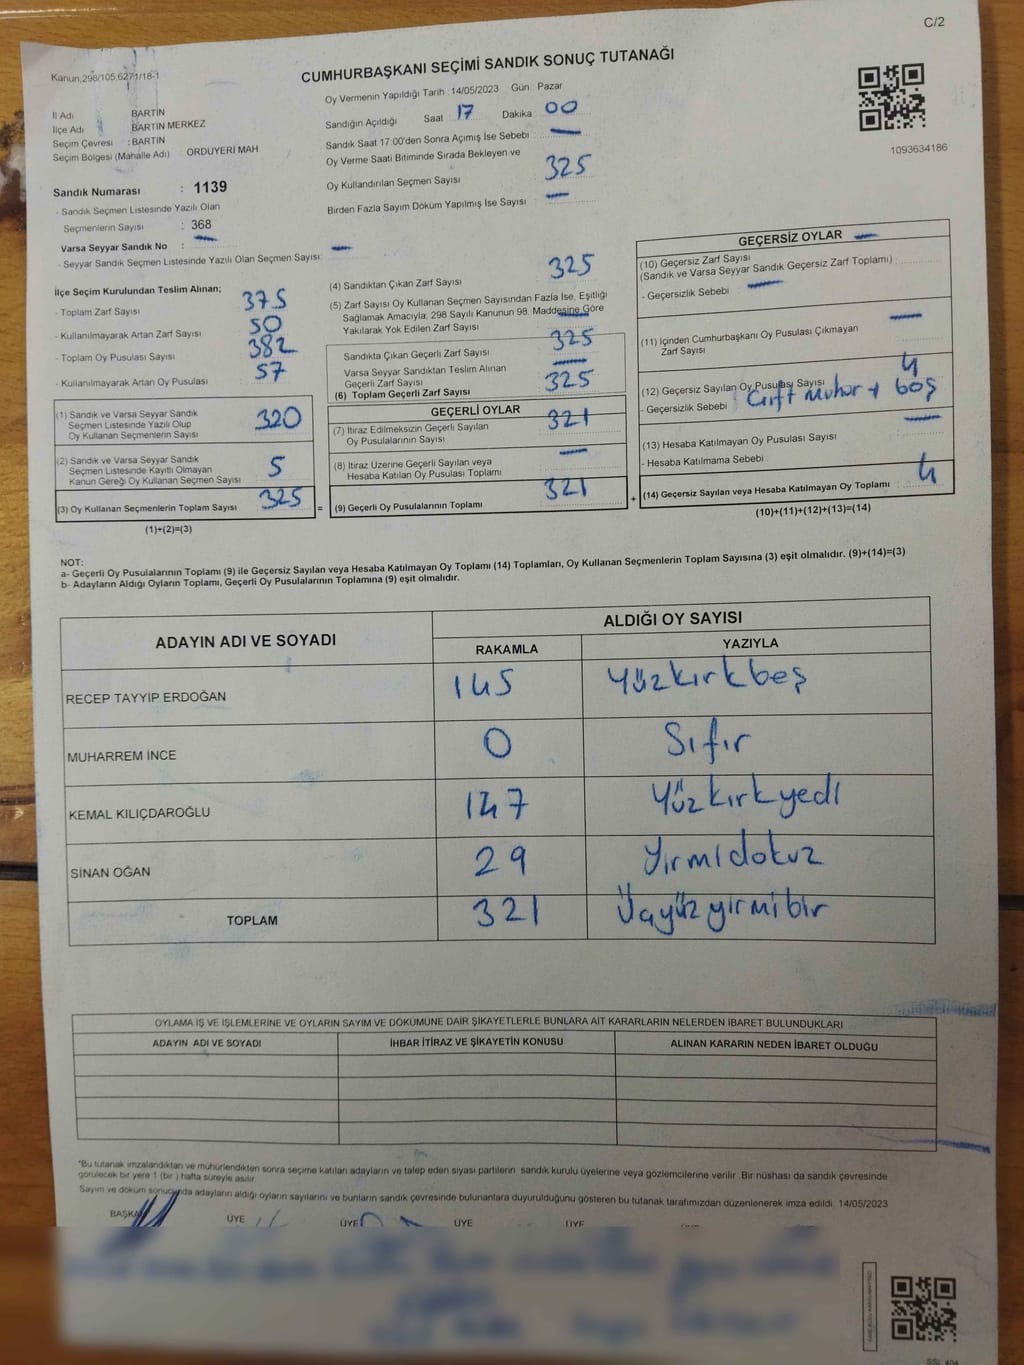 C/2
Kanun;298/105;6271/18-1
CUMHURBAŞKANI SEÇİMİ SANDIK SONUÇ TUTANAĞI
1093634186
İl Adı BARTIN
İlçe Adı BARTIN MERKEZ
Seçim Çevresi : BARTIN
Seçim Bölgesi (Mahalle Adı) ORDUYERİ MAH.
Sandık Numarası : 1139
- Sandık Seçmen Listesinde Yazılı Olan
Seçmenlerin Sayısı : 368
Varsa Seyyar Sandık No :
- Seyyar Sandık Seçmen Listesinde Yazılı Olan Seçmen Sayısı:
Oy Vermenin Yapıldığı Tarih 14/05/2023 Gün Pazar
Sandığın Açıldığı Saat 17 Dakika 00
Sandık Saat 17.00'den Sonra Açımış İse Sebebi
Oy Verme Saati Bitiminde Sırada Bekleyen ve
Oy Kullandırılan Seçmen Sayısı 325
Birden Fazla Sayım Döküm Yapılmış İse Sayısı
İlçe Seçim Kurulundan Teslim Alınan;
- Toplam Zarf Sayısı 375
- Kullanılmayarak Artan Zarf Sayısı 50
- Toplam Oy Pusulası Sayısı 382
- Kullanılmayarak Artan Oy Pusulası 57
(1) Sandık ve Varsa Seyyar Sandık
Seçmen Listesinde Yazılı Olup
Oy Kullanan Seçmenlerin Sayısı 320
(2) Sandık ve Varsa Seyyar Sandık
Seçmen Listesinde Kayıtlı Olmayan
Kanun Gereği Oy Kullanan Seçmen Sayısı 5
(3) Oy Kullanan Seçmenlerin Toplam Sayısı 325
(1)+(2)=(3)
=
(4) Sandıktan Çıkan Zarf Sayısı 325
(5) Zarf Sayısı Oy Kullanan Seçmen Sayısından Fazla İse, Eşitliği
Sağlamak Amacıyla; 298 Sayılı Kanunun 98. Maddesine Göre
Yakılarak Yok Edilen Zarf Sayısı
Sandıkta Çıkan Geçerli Zarf Sayısı 325
Varsa Seyyar Sandıktan Teslim Alınan
Geçerli Zarf Sayısı
(6) Toplam Geçerli Zarf Sayısı 325
GEÇERLİ OYLAR
(7) İtiraz Edilmeksizin Geçerli Sayılan
Oy Pusulalarının Sayısı 321
(8) İtiraz Üzerine Geçerli Sayılan veya
Hesaba Katılan Oy Pusulası Toplamı
(9) Geçerli Oy Pusulalarının Toplamı 321
+
GEÇERSİZ OYLAR
(10) Geçersiz Zarf Sayısı
(Sandık ve Varsa Seyyar Sandık Geçersiz Zarf Toplamı) :
- Geçersizlik Sebebi :
(11) İçinden Cumhurbaşkanı Oy Pusulası Çıkmayan
Zarf Sayısı
(12) Geçersiz Sayılan Oy Pusulası Sayısı 4
- Geçersizlik Sebebi : Çift Muhur + boş
(13) Hesaba Katılmayan Oy Pusulası Sayısı
- Hesaba Katılmama Sebebi :
(14) Geçersiz Sayılan veya Hesaba Katılmayan Oy Toplamı : 4
(10)+(11)+(12)+(13)=(14)
NOT:
a- Geçerli Oy Pusulalarının Toplamı (9) ile Geçersiz Sayılan veya Hesaba Katılmayan Oy Toplamı (14) Toplamları, Oy Kullanan Seçmenlerin Toplam Sayısına (3) eşit olmalıdır. (9)+(14)=(3)
b- Adayların Aldığı Oyların Toplamı, Geçerli Oy Pusulalarının Toplamına (9) eşit olmalıdır.
ADAYIN ADI VE SOYADI
ALDIĞI OY SAYISI
RAKAMLA YAZIYLA
RECEP TAYYİP ERDOĞAN 145 Yüzkırkbeş
MUHARREM İNCE 0 Sıfır
KEMAL KILIÇDAROĞLU 147 Yüzkırkyedi
SİNAN OĞAN 29 Yirmidokuz
TOPLAM 321 Üçyüzyirmibir
OYLAMA İŞ VE İŞLEMLERİNE VE OYLARIN SAYIM VE DÖKÜMÜNE DAİR ŞİKAYETLERLE BUNLARA AİT KARARLARIN NELERDEN İBARET BULUNDUKLARI
ADAYIN ADI VE SOYADI İHBAR İTİRAZ VE ŞİKAYETİN KONUSU ALINAN KARARIN NEDEN İBARET OLDUĞU
"Bu tutanak imzalandıktan ve mühürlendikten sonra seçime katılan adayların ve talep eden siyasi partilerin sandık kurulu üyelerine veya gözlemcilerine verilir. Bir nüshası da sandık çevresinde
görülecek bir yere 1 (bir) hafta süreyle asılır.
Sayım ve döküm sonucunda adayların aldığı oyların sayılarını ve bunların sandık çevresinde bulunanlara duyurulduğunu gösteren bu tutanak tarafımızdan düzenlenerek imza edildi. 14/05/2023
BAŞKA ÜYE ÜYE ÜYE ÜYE